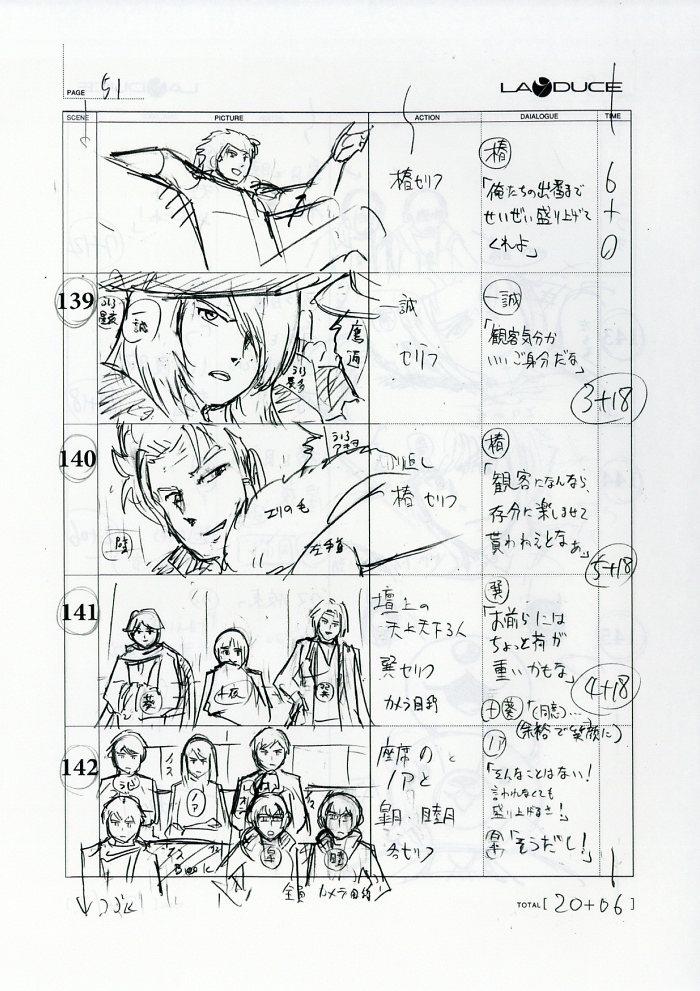 PAGE 51
LA DUCE
SCENE PICTURE ACTION DAIALOGUE TIME
椿セリフ
椿
「俺たちの出番まで
せいぜい盛り上げて
くれよ」
6+0
139
一誠
鷹通
一誠
セリフ
一誠
「観客気分か
いいご身分だな」
3+18
140
エリの毛
左手首
切り返し
椿 セリフ
椿
「観客になんなら、
存分に楽しませて
貰わねえとなぁ」
5+18
141
葵
十夜
巽
壇上の
天上天下3人
巽セリフ
カメラ目線
巽
「お前らには
ちょっと荷が
重いかもな」
4+18
十葵「(同意)…
(余裕で笑顔に)
142
ノア
皐
睦
Book
全員 カメラ目線
座席の
ノアと
皐月・睦月
各セリフ
ノア
「そんなことはない!
言われなくても
盛り上げるさ!」
皐「そうだし!」
つづく
TOTAL [20+06]